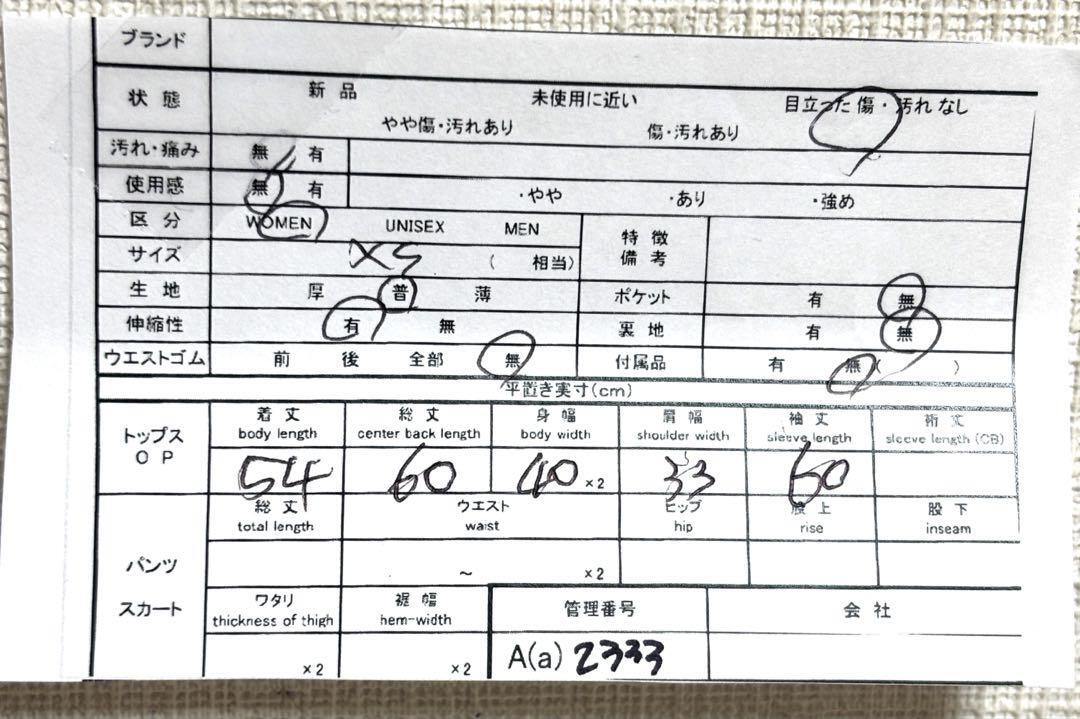 ブランド
状態 新品 未使用に近い 目立った傷・汚れなし
やや傷・汚れあり 傷・汚れあり
汚れ・痛み 無 有
使用感 無 有 ・やや ・あり ・強め
区分 WOMEN UNISEX MEN 特徴
備考
サイズ XS ( 相当)
生地 厚 普 薄 ポケット 有 無
伸縮性 有 無 裏地 有 無
ウエストゴム 前 後 全部 無 付属品 有 無 ( )
平置き実寸(cm)
トップス
OP
着丈 総丈 身幅 肩幅 袖丈 裄丈
body length center back length body width shoulder width sleeve length sleeve length (CB)
54 60 40 ×2 33 60
パンツ
スカート
総丈 ウエスト ヒップ 股上 股下
total length waist hip rise inseam
~ ×2
ワタリ 裾幅 管理番号 会社
thickness of thigh hem-width
×2 ×2 A(a) 2333